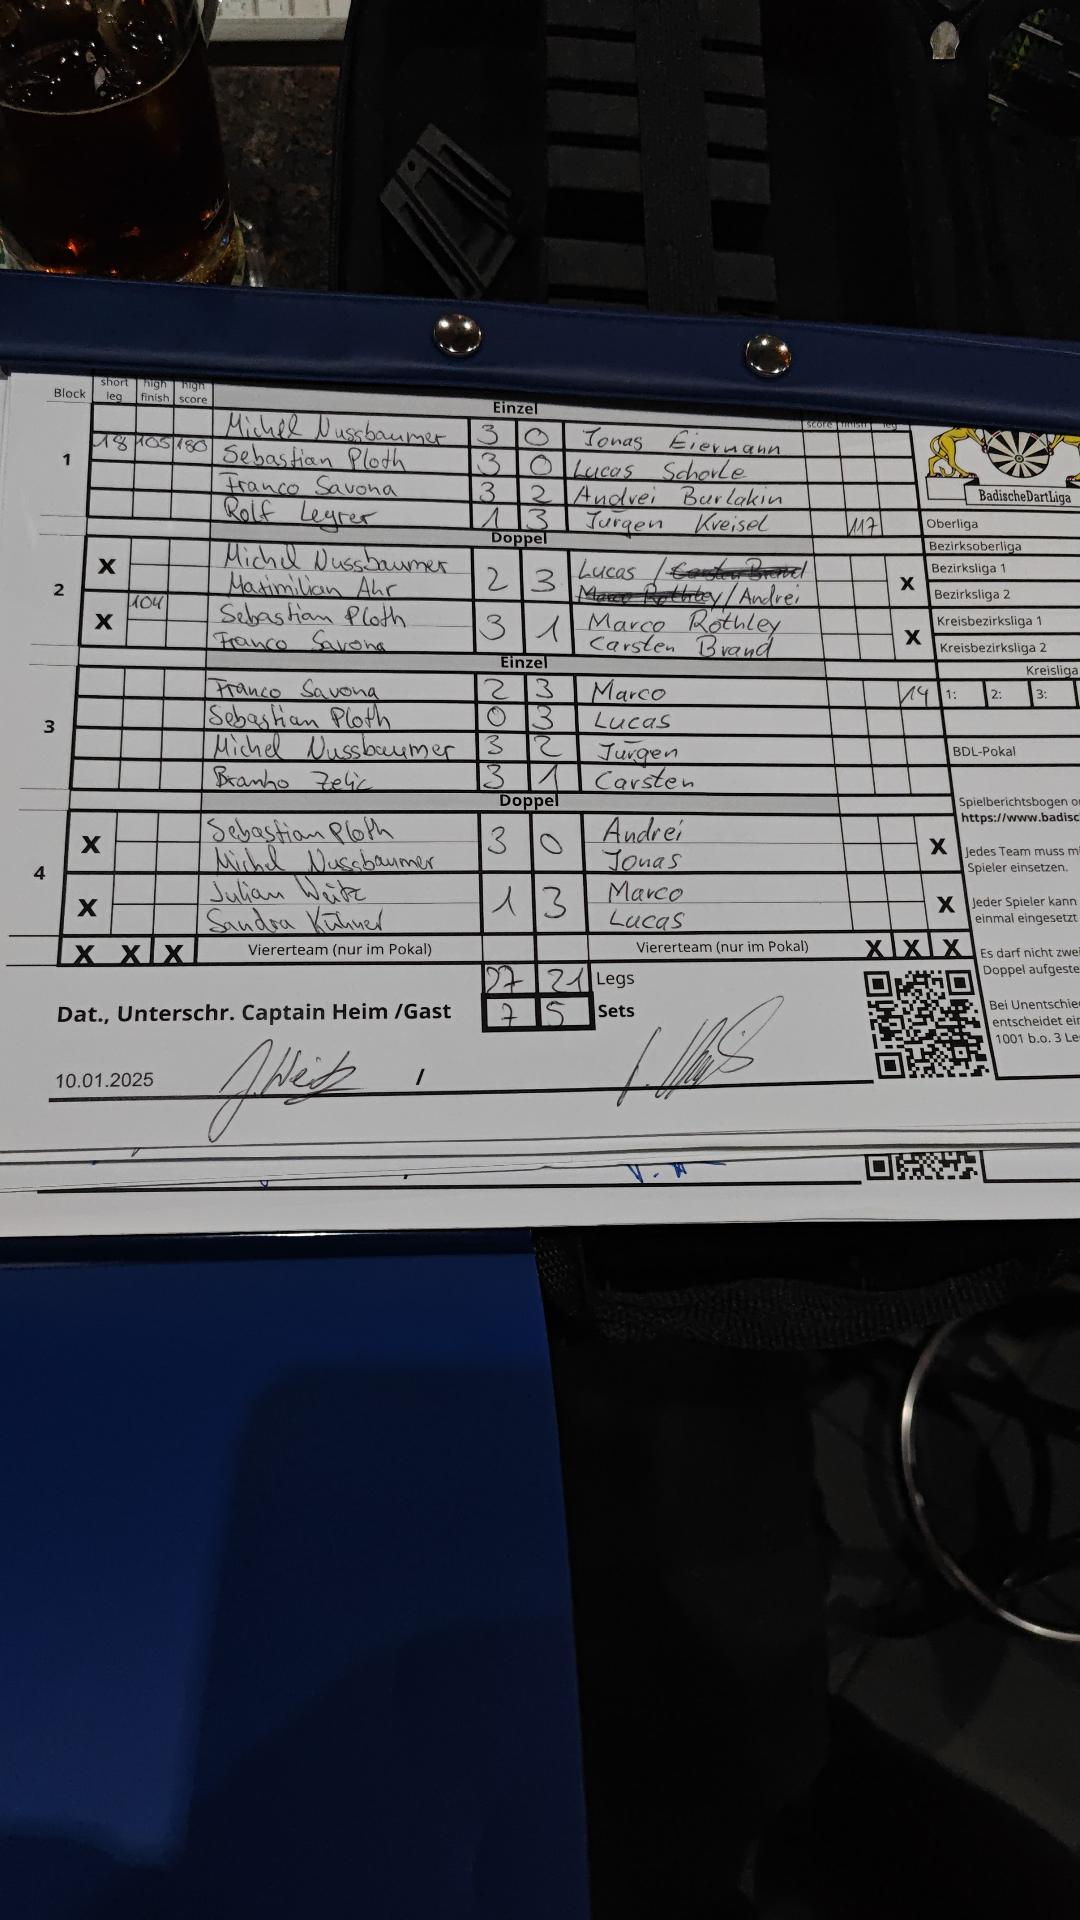 Block short leg high finish high score Einzel
Michel Nussbaumer 3 0 Jonas Eiermann
1 18 105 180 Sebastian Ploth 3 0 Lucas Schorle
Franco Savona 3 2 Andrei Burlakin
Rolf Legrer 1 3 Jürgen Kreisel 117
BadischeDartLiga
Oberliga
Doppel
Bezirksoberliga
2 X Michel Nussbaumer 2 3 Lucas / Carsten Brand X
Maximilian Ahr Marco Rothley / Andrei
Bezirksliga 1
Bezirksliga 2
X 104 Sebastian Ploth 3 1 Marco Rothley X
Franco Savona Carsten Brand
Kreisbezirksliga 1
Kreisbezirksliga 2
Einzel
Kreisliga
Franco Savona 2 3 Marco 14
1: 2: 3:
3 Sebastian Ploth 0 3 Lucas
Michel Nussbaumer 3 2 Jürgen
BDL-Pokal
Branko Zelic 3 1 Carsten
Doppel
4 X Sebastian Ploth 3 0 Andrei X
Michel Nussbaumer Jonas
X Julian Weitz 1 3 Marco X
Sandra Kühner Lucas
X X X Viererteam (nur im Pokal) Viererteam (nur im Pokal) X X X
27 21 Legs
Dat., Unterschr. Captain Heim /Gast 7 5 Sets
10.01.2025 J. Weitz /
Spielberichtsbogen
https://www.badisc
Jedes Team muss
Spieler einsetzen.
Jeder Spieler kann
einmal eingesetzt
Es darf nicht
Doppel
Bei
entscheidet
1001 b.o. 3